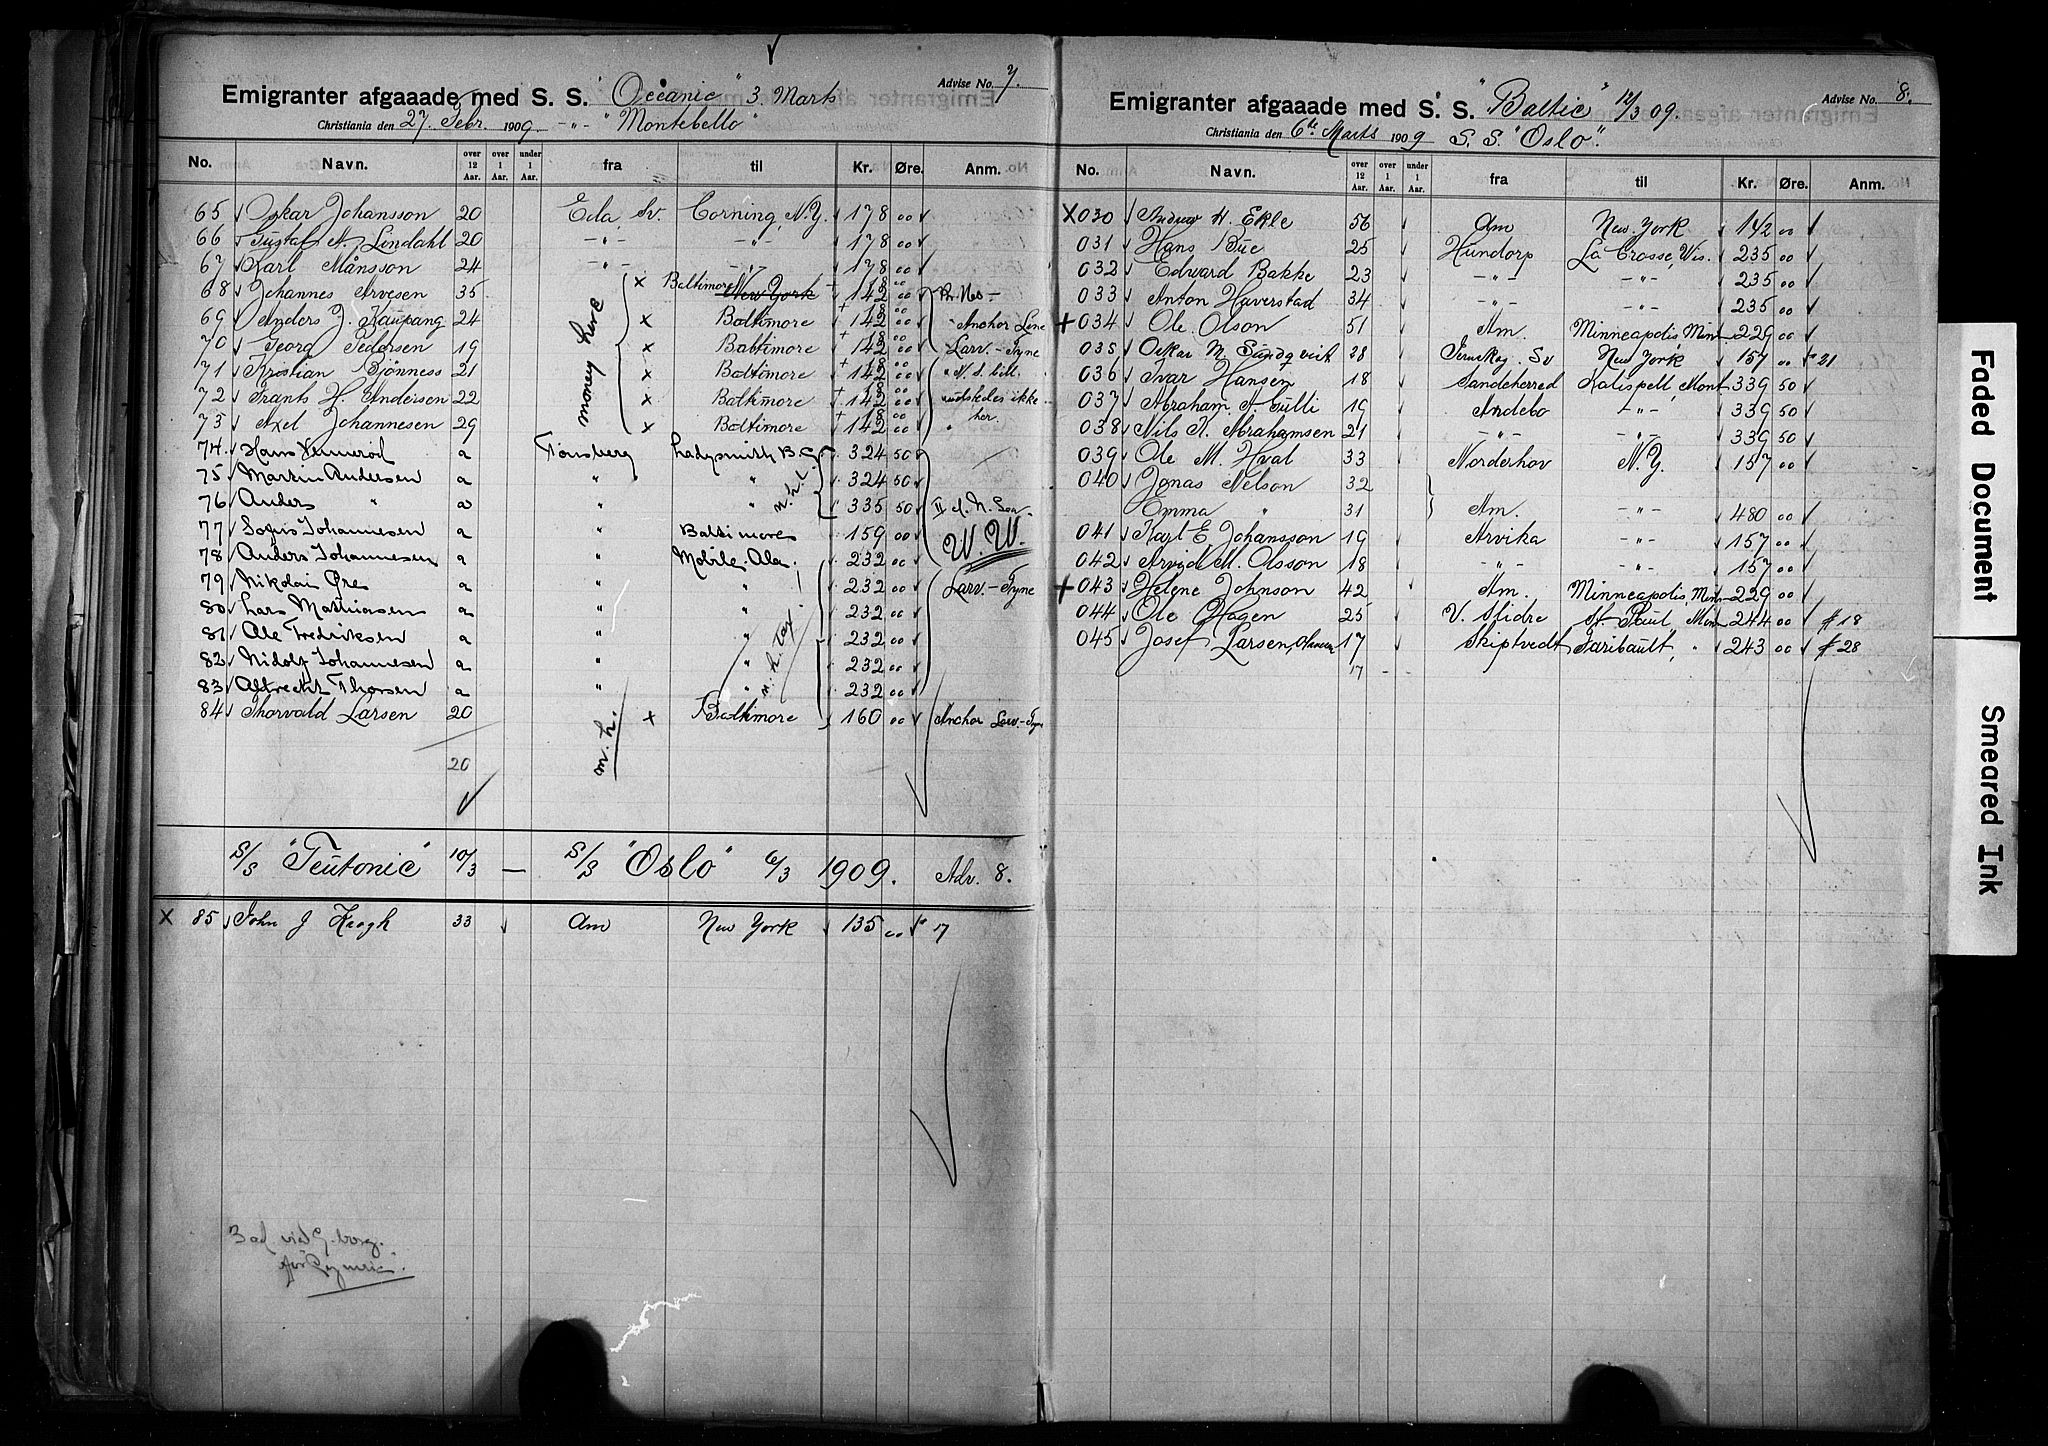 Emigranter afgaaade med S. S. "Oceanic" 3. Marts Advise No. 7.
Christiania den 27. Febr. 1909 -"- "Montebello"
No. Navn. over 12 Aar. over 1 Aar. under 1 Aar. fra til Kr. Øre. Anm.
65 Oskar Johansson 20 Eda, Sv. Corning, N.Y. 178 00
66 Gustaf A. Lindahl 20 -"- -"- 178 00
67 Karl Månsson 24 -"- -"- 178 00
68 Johannes Arvesen 35 x Baltimore New York 142 00
69 Anders J. Kaupang 24 x Baltimore 142 00 Anchor Line
70 Georg Pedersen 19 x Baltimore 142 00 Larv.-Tyne
71 Kristian Bjönness 21 x Baltimore 142 00
72 Frants H. Andersen 22 x Baltimore 142 00 udstedes ikke
73 Axel Johannesen 29 x Baltimore 142 00 her.
money here
74 Hans a Tönsberg Ladysmith B.C. 324 50
75 Martin Andersen a " " 324 50
76 Anders " a " " 335 50
m.h.
77 Sofus Johannesen a " Baltimore 159 00 W.W.
78 Anders Johannesen a " Mobile. Ala. 232 00
79 Nikolai Øre a " " 232 00 Larv-Tyne
80 Lars Mathiasen a " " 232 00
81 Ole Fredriksen a " " 232 00
82 Nidolf Johannesen a " " 232 00
83 Albrecht Thorsen a " " 232 00
84 Thorvald Larsen 20 x Baltimore 160 00 Anchor Larv-Tyne
m.h.
20
S/S "Teutonic" 10/3 — S/S "Oslo" 6/3 1909. Adv. 8.
X 85 John J Keogh 33 Am New York 135 00 $ 17
Emigranter afgaaade med S. S. "Baltic" 12/3 09. Advise No. 8.
Christiania den 6te Marts 1909 S.S. "Oslo".
No. Navn. over 12 Aar. over 1 Aar. under 1 Aar. fra til Kr. Øre. Anm.
X 030 Andrew H. Ekle 56 Am New York 142 00
031 Hans Bue 25 Hundorp La Crosse, Wis. 235 00
032 Edward Bakke 23 -"- -"- 235 00
033 Anton Haverstad 34 -"- -"- 235 00
+ 034 Ole Olson 51 Am. Minneapolis, Minn 229 00
035 Oskar M. Sundqvist 28 Sv New York 157 00 $ 21
036 Ivar Hansen 18 Sandeherred Kalispell, Mont 339 50
037 Abraham A. Gulli 19 Andebo -"- 339 50
038 Nils A. Abrahamsen 21 -"- -"- 339 50
039 Ole M. Hval 33 Norderhov N.Y. 157 00
040 Jonas Nelson 32
Emma " 31 Am. -"- 480 00
041 Karl E Johansson 19 Arvika -"- 157 00
042 Arvid M. Olsson 18 -"- -"- 157 00
+ 043 Helene Johnson 42 Am. Minneapolis, Minn 229 00
044 Ole Hagen 25 V. Slidre St. Paul, Min 244 00 $ 18
045 Josef Larsen 17 Skiptvedt Faribault, " 243 00 $ 28
17 - -
Faded Document
Smeared Ink